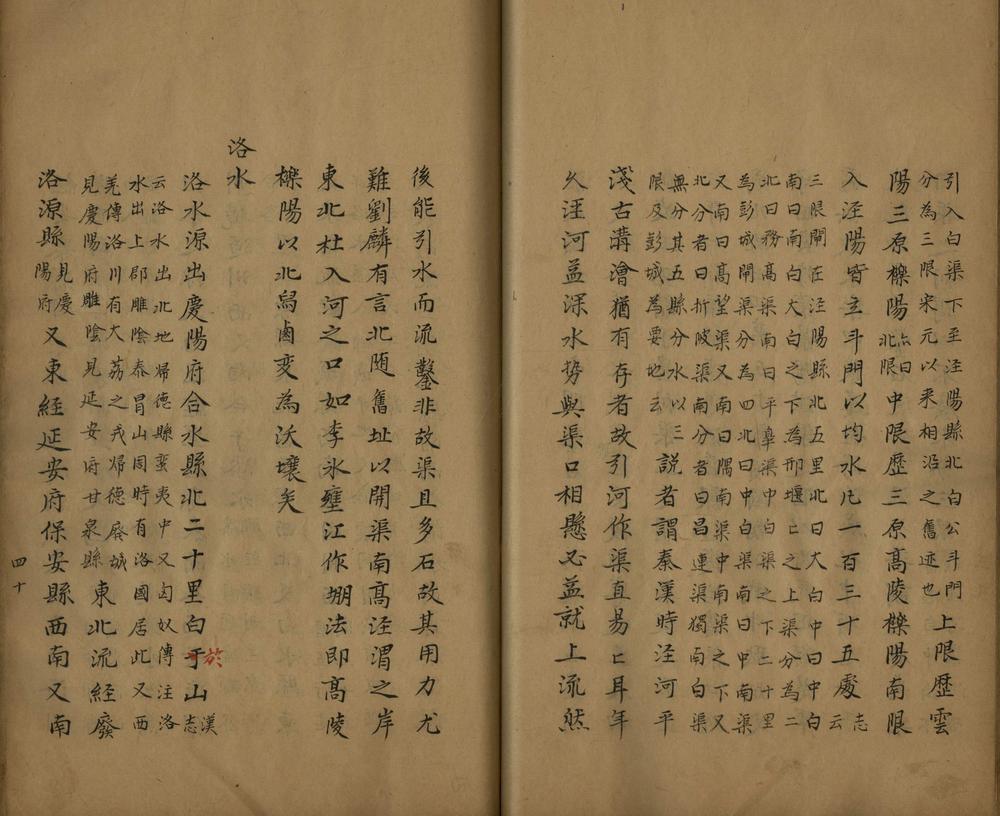 引入白渠下至涇陽縣北白公斗門
分為三限宋元以来相沿之舊迹也
上限歷雲
陽三原櫟陽
六曰
北限
中限歷三原髙陵櫟陽南限
入涇陽皆立斗門以均水凢一百三十五處
志
云
三限閘在泾陽縣北五里北曰大白中曰中白
南曰南白大白之下為邢堰亡之上渠分為二
北曰務髙渠南曰平臯渠中白渠之下二十里
為彭城閘渠分為四北曰中白渠南曰中南渠
又南曰高望渠又南曰隅南渠中南渠之下又
北分者曰折陂渠南分者曰昌連渠獨南白渠
無分其五縣分水以三
限及彭城為要地云
說者謂秦漢時泾河平
淺古溝澮猶有存者故引河作渠直易亡耳年
久泾河益深水势與渠口相懸必益就上流然
後能引水而流鑿非故渠且多石故其用力尤
難劉麟有言北随舊址以開渠南髙泾渭之岸
東北杜入河之口如李氷壅江作堋法即髙陵
櫟陽以北舄鹵变為沃壤矣
洛水
洛水源出慶陽府合水縣北二十里白于山
於
漢
志
云洛水出北地歸德縣蠻夷中又匈奴傳注洛
水出上郡雕陰泰冒山周時有洛國居此又西
羌傳洛川有大荔之戎歸德廢城
見慶陽府雕陰見延安府甘泉縣
東北流經廢
洛源縣
見慶
陽府
又東經延安府保安縣西南又南
四十